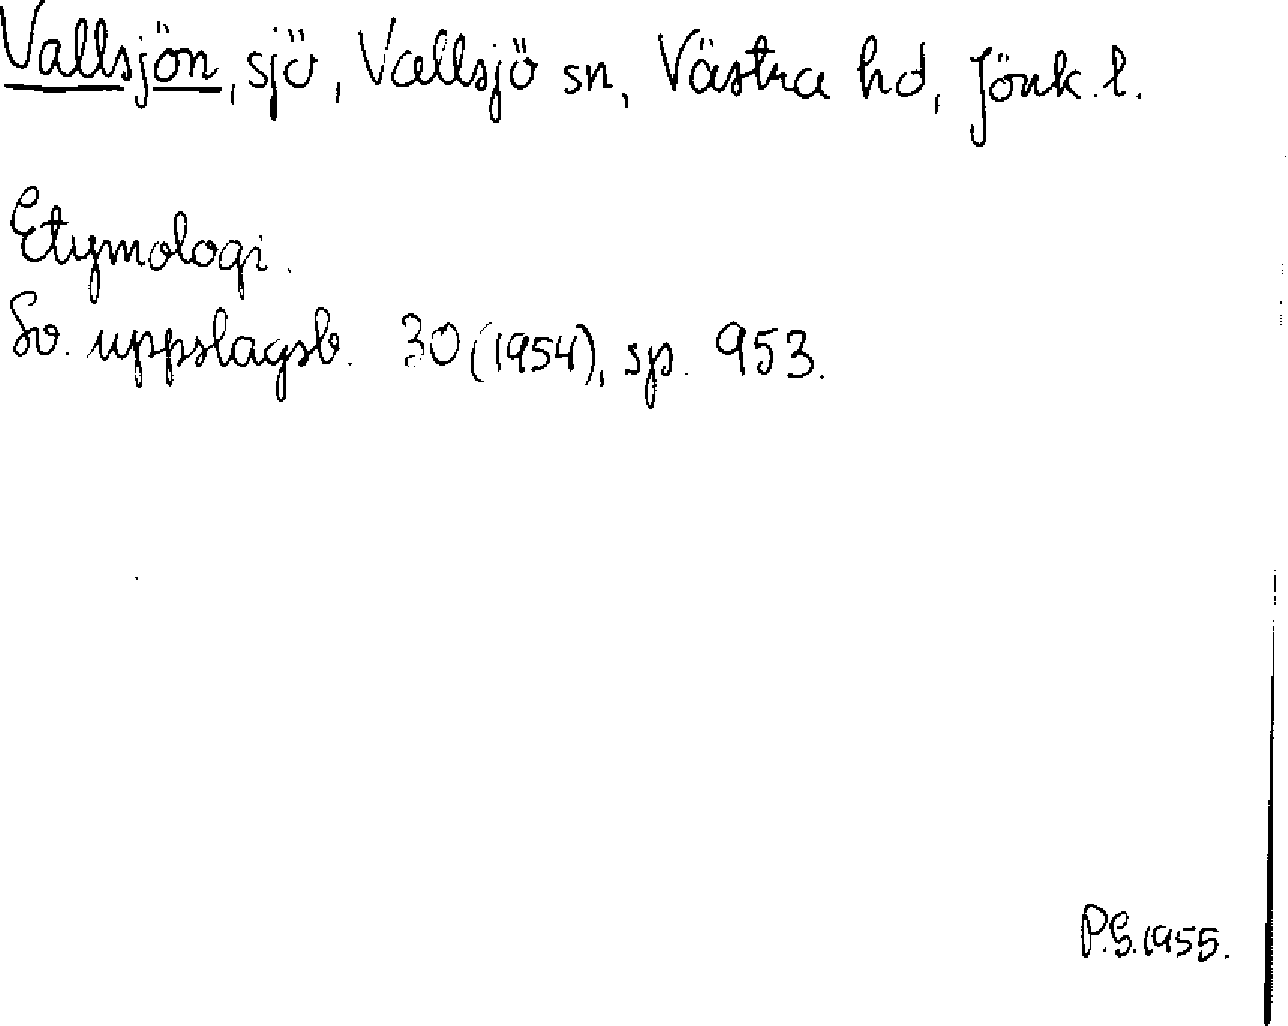 Vallsjön, sjö, Vallsjö sn, Västra hd, Jönk. l.
Etymologi.
Sv. uppslagsb. 30 (1954), sp. 953.
P.G. 1955.